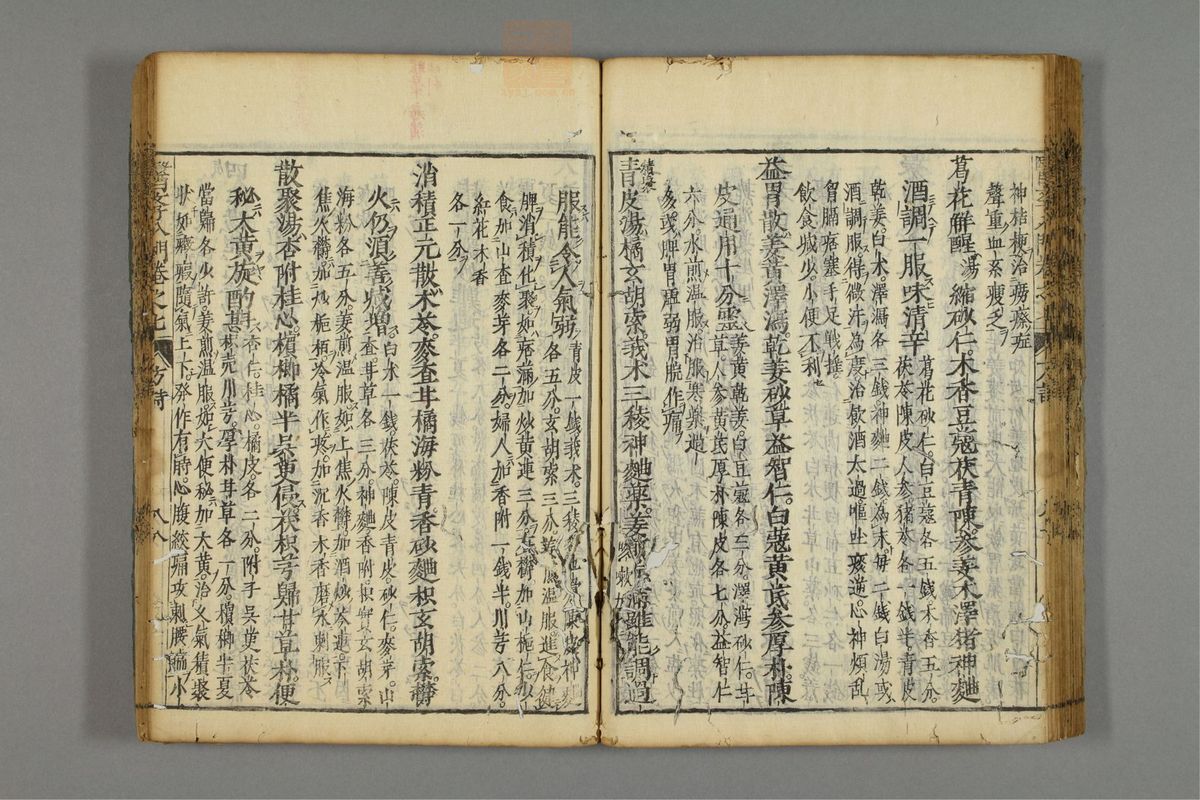 神桔梗治癆瘵在
聲重血系瘦多
葛花解醒湯縮砂仁木香豆蔻茯青陳參姜朮澤猪神麯
酒調一服味清辛葛花砂仁白豆蔻各五錢木香五分
茯苓陳皮人參猪苓各一錢半青皮
乾姜白朮澤瀉各三錢神麯二錢為末每二錢白湯或
酒調服得微汗為度治飲酒太過嘔吐痰逆心神煩亂
智膈痞塞手足戰搖
飲食減少小便不利
益胃散姜黃澤瀉乾姜砂草益智仁白蔻黃芪參厚朴陳
皮通用十分靈姜黃乾姜白豆蔻各三分澤瀉砂仁甘
草人參黃芪厚朴陳皮各七分益智仁
六分水煎温服治服寒藥過
多或脾胃虛弱胃脘作痛
青皮湯橘玄胡索莪朮三稜神麯藥姜雖能調
服能令人氣弱青皮一錢莪朮三稜陳皮神麯
各五分玄胡索三分姜煎温服進食
脾消積化聚如痞滿加炒黃連三分玄鬱加山梔仁
食加山查麥芽各二分婦人加香附一錢半川芎八分
紅花木香
各一分
消積正元散朮苓麥查甘橘海粉青香砂麯枳玄胡索鬱
火仍須善減增白朮一錢茯苓陳皮青皮砂仁麥芽山
查甘草各三分神麯香附枳實玄胡索
海粉各五分姜煎温服如上焦火鬱加酒炒芩連中
焦火鬱加炒梔梔冷氣作疼加沉香木香磨水刺服
散聚湯杏附桂心檳榔橘半吳萸侵茯枳芎歸甘草朴便
秘大黃旋酌斟杏仁桂心橘皮各二分附子吳萸茯苓
枳壳川芎厚朴甘草各一分檳榔半夏
當歸各少許姜煎温服如大便秘加大黃治久氣積聚
狀如癥瘕隨氣上下發作有時心腹絞痛攻刺腰脇小
醫學入門卷之七
方詩
八八